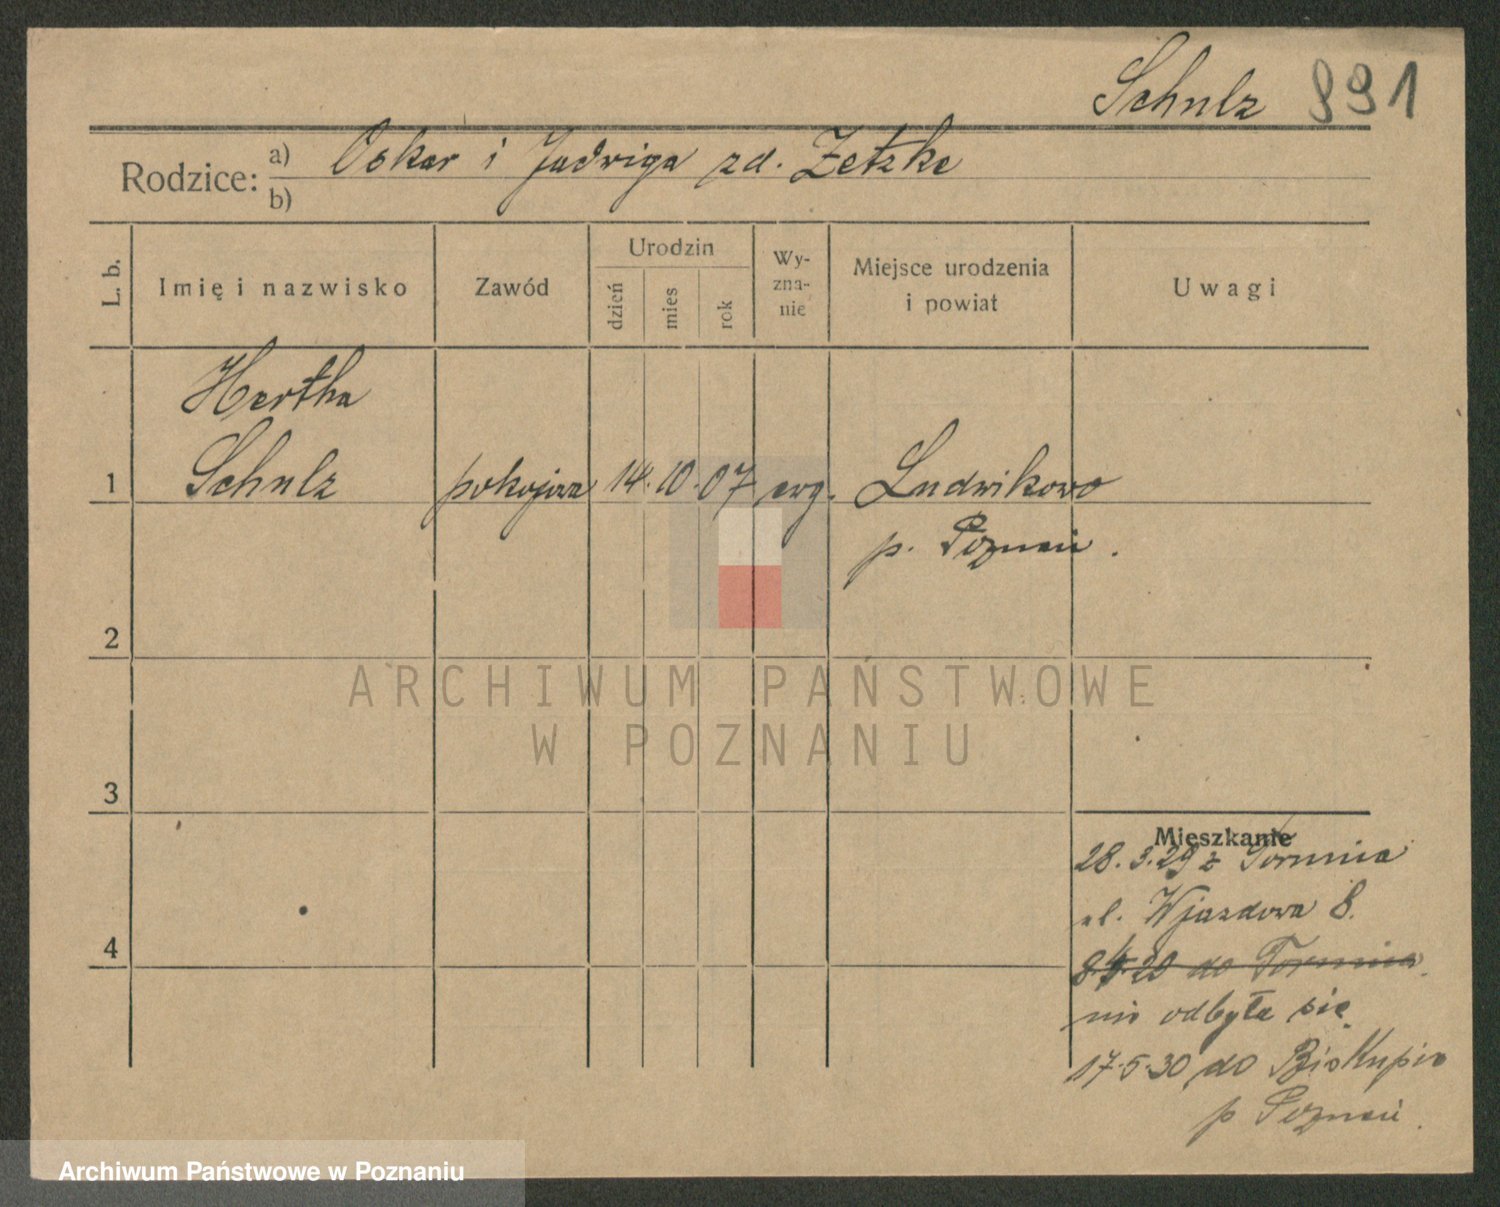 Schulz 991
Rodzice: a) Oskar i Jadwiga zd. Zetzke
b)
L. b. Imię i nazwisko Zawód Urodzin dzień mies rok Wy-zna-nie Miejsce urodzenia i powiat Uwagi
Hertha
1 Schulz pokojowa 14. 10. 07 ewg. Ludwikowo
p. Poznań.
2
ARCHIWUM PAŃSTWOWE
W POZNANIU
3
Mieszkanie
28.3.29 z Torunia
ul. Wjazdowa 8.
4 do Torunia
nie odbyła się
17.5.30 do Biskupie
p Poznań.
Archiwum Państwowe w Poznaniu